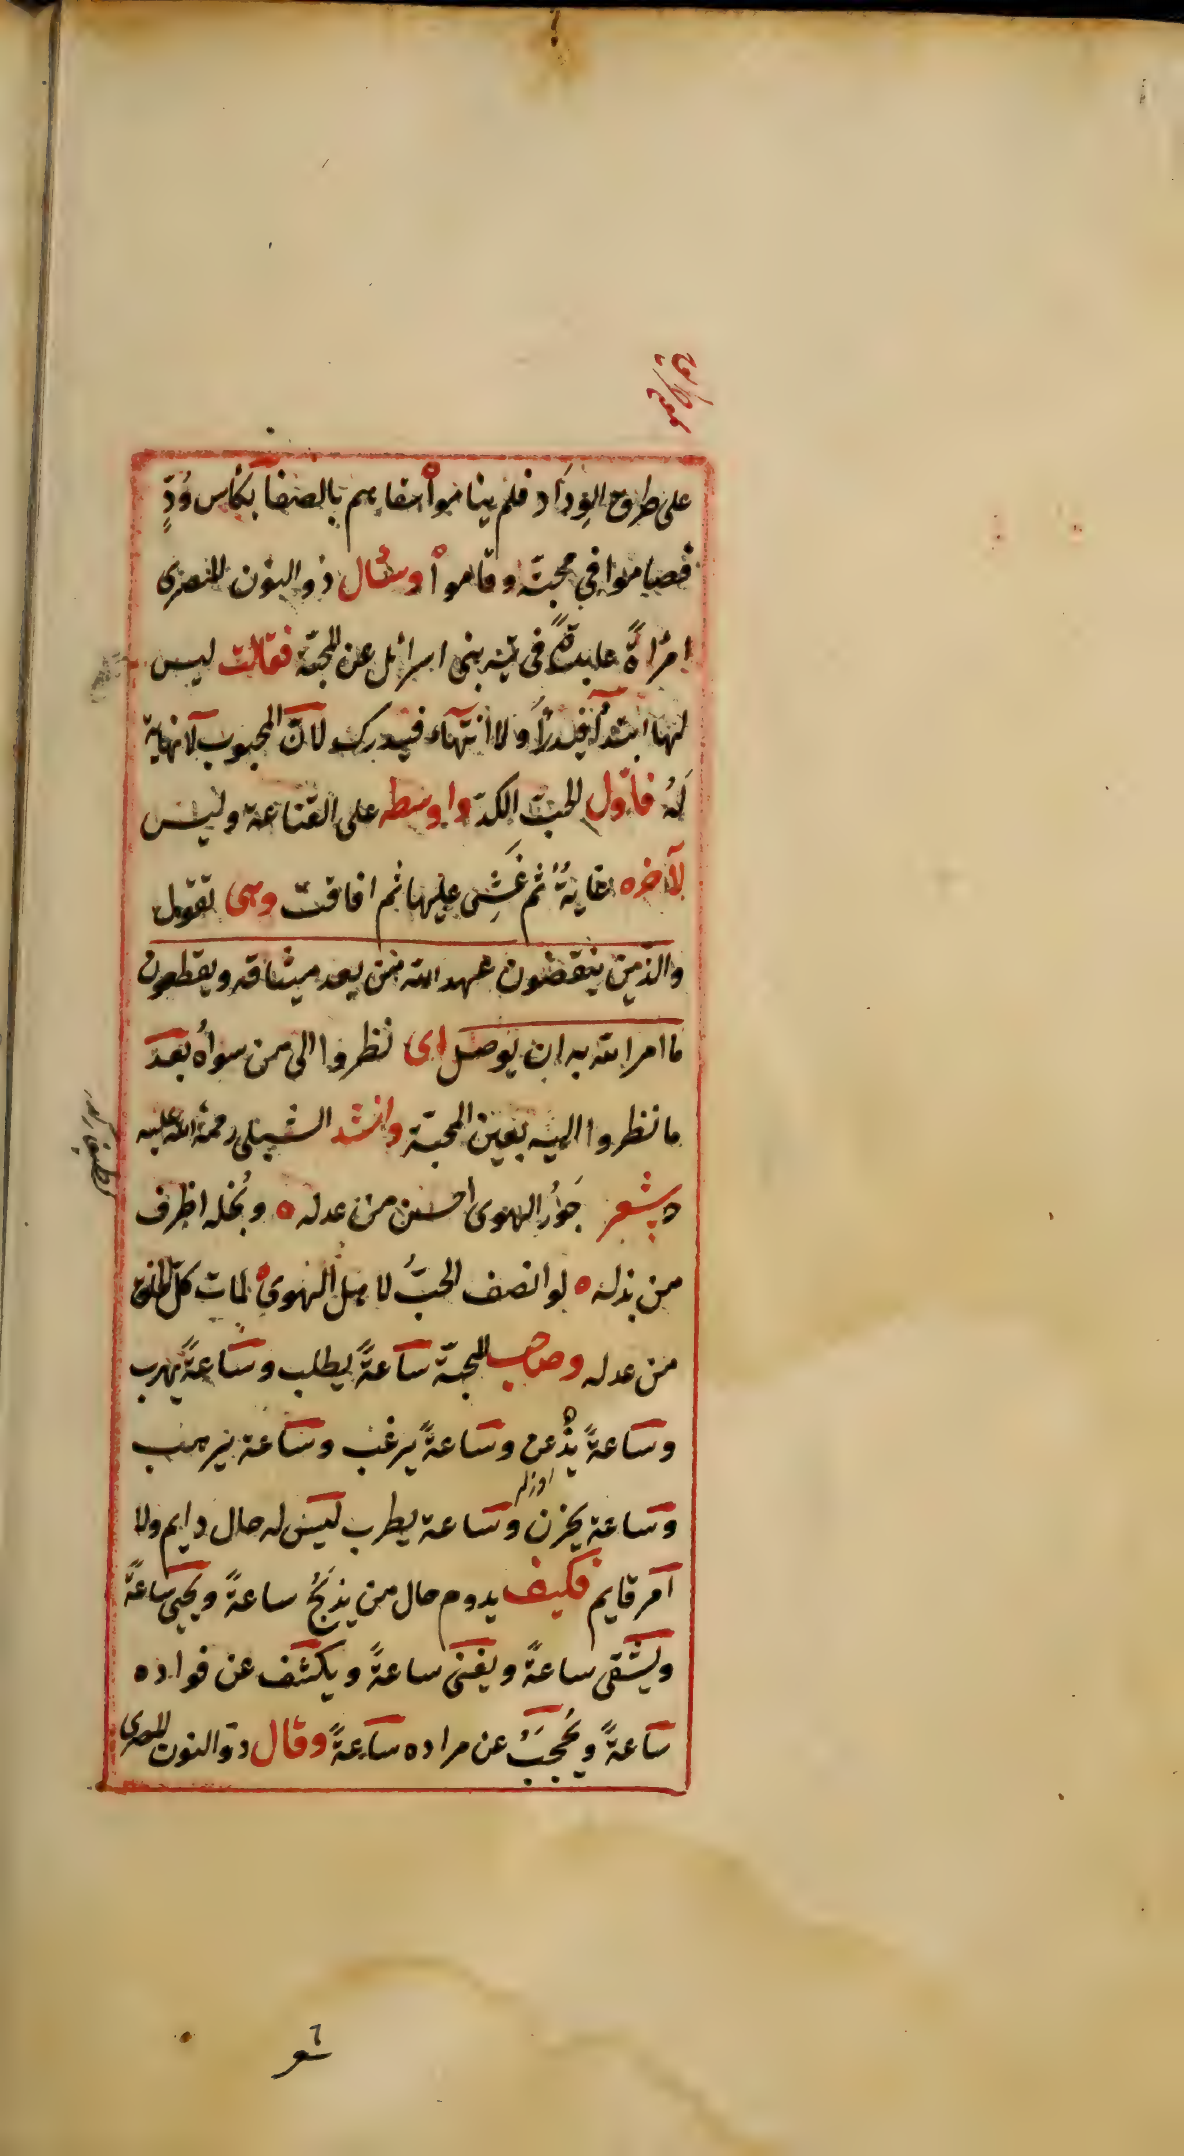 على طرق الوِدَاد فلم يناموا سقاهم بالصفا بكأس وُدٍّ
فصاموا في محبته وقاموا وسُأل ذو النون المصرى
امرْاةً عابدةً فى تيه بنى اسرائل عن المحبّة فقالت ليس
لها ابتدأ فيدرا ولا انتهاء فيدرك لان المحبوب لا نهاية
لَهُ فاوّل الحبّ الكدّ واوسطه على القناعة وليس
لآخره غايةٌ ثم غَشِى عليها ثم افاقت وهى تقول
والذين ينقضون عهد الله من بعد ميثاقه ويقطعون
ما امر الله به ان يوصل اى نظروا الى من سواهُ بعد
ما نظروا اليه بعين المحبّة وانشد الشبلى رحمة الله عليه
شعر جَوْرُ الهوى احسن من عدله ه وبُخله اظرف
من بذله ه لو انصف الحبُّ لاهل الهوى ه لمات كلّ الخلق
من عدله وصاحب المحبّة ساعةً يطلب وساعةً يهرب
وساعةً يذْعن وساعةً يرغب وساعة يرهب
وساعة يحزن وساعة يطرب ليس له حال دايم ولا
امر قايم فكيف يدوم حال من يذبَحُ ساعةً ويحيى ساعةً
ويشقى ساعةً ويغنى ساعةً ويكشف عن فواده
ساعةً ويُحجَبُ عن مراده ساعةً وقال ذو النون المصرى